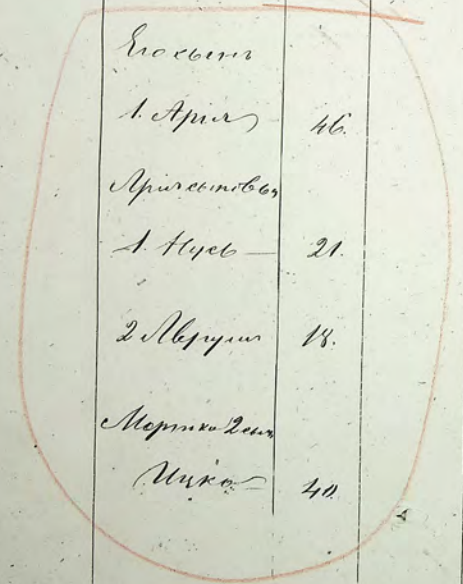 Его сынъ
1. Арія 46.
Арія сыновья
1. Нусь — 21.
2 Аврумъ 18.
Мортко 2 сынъ
Ицко — 40.